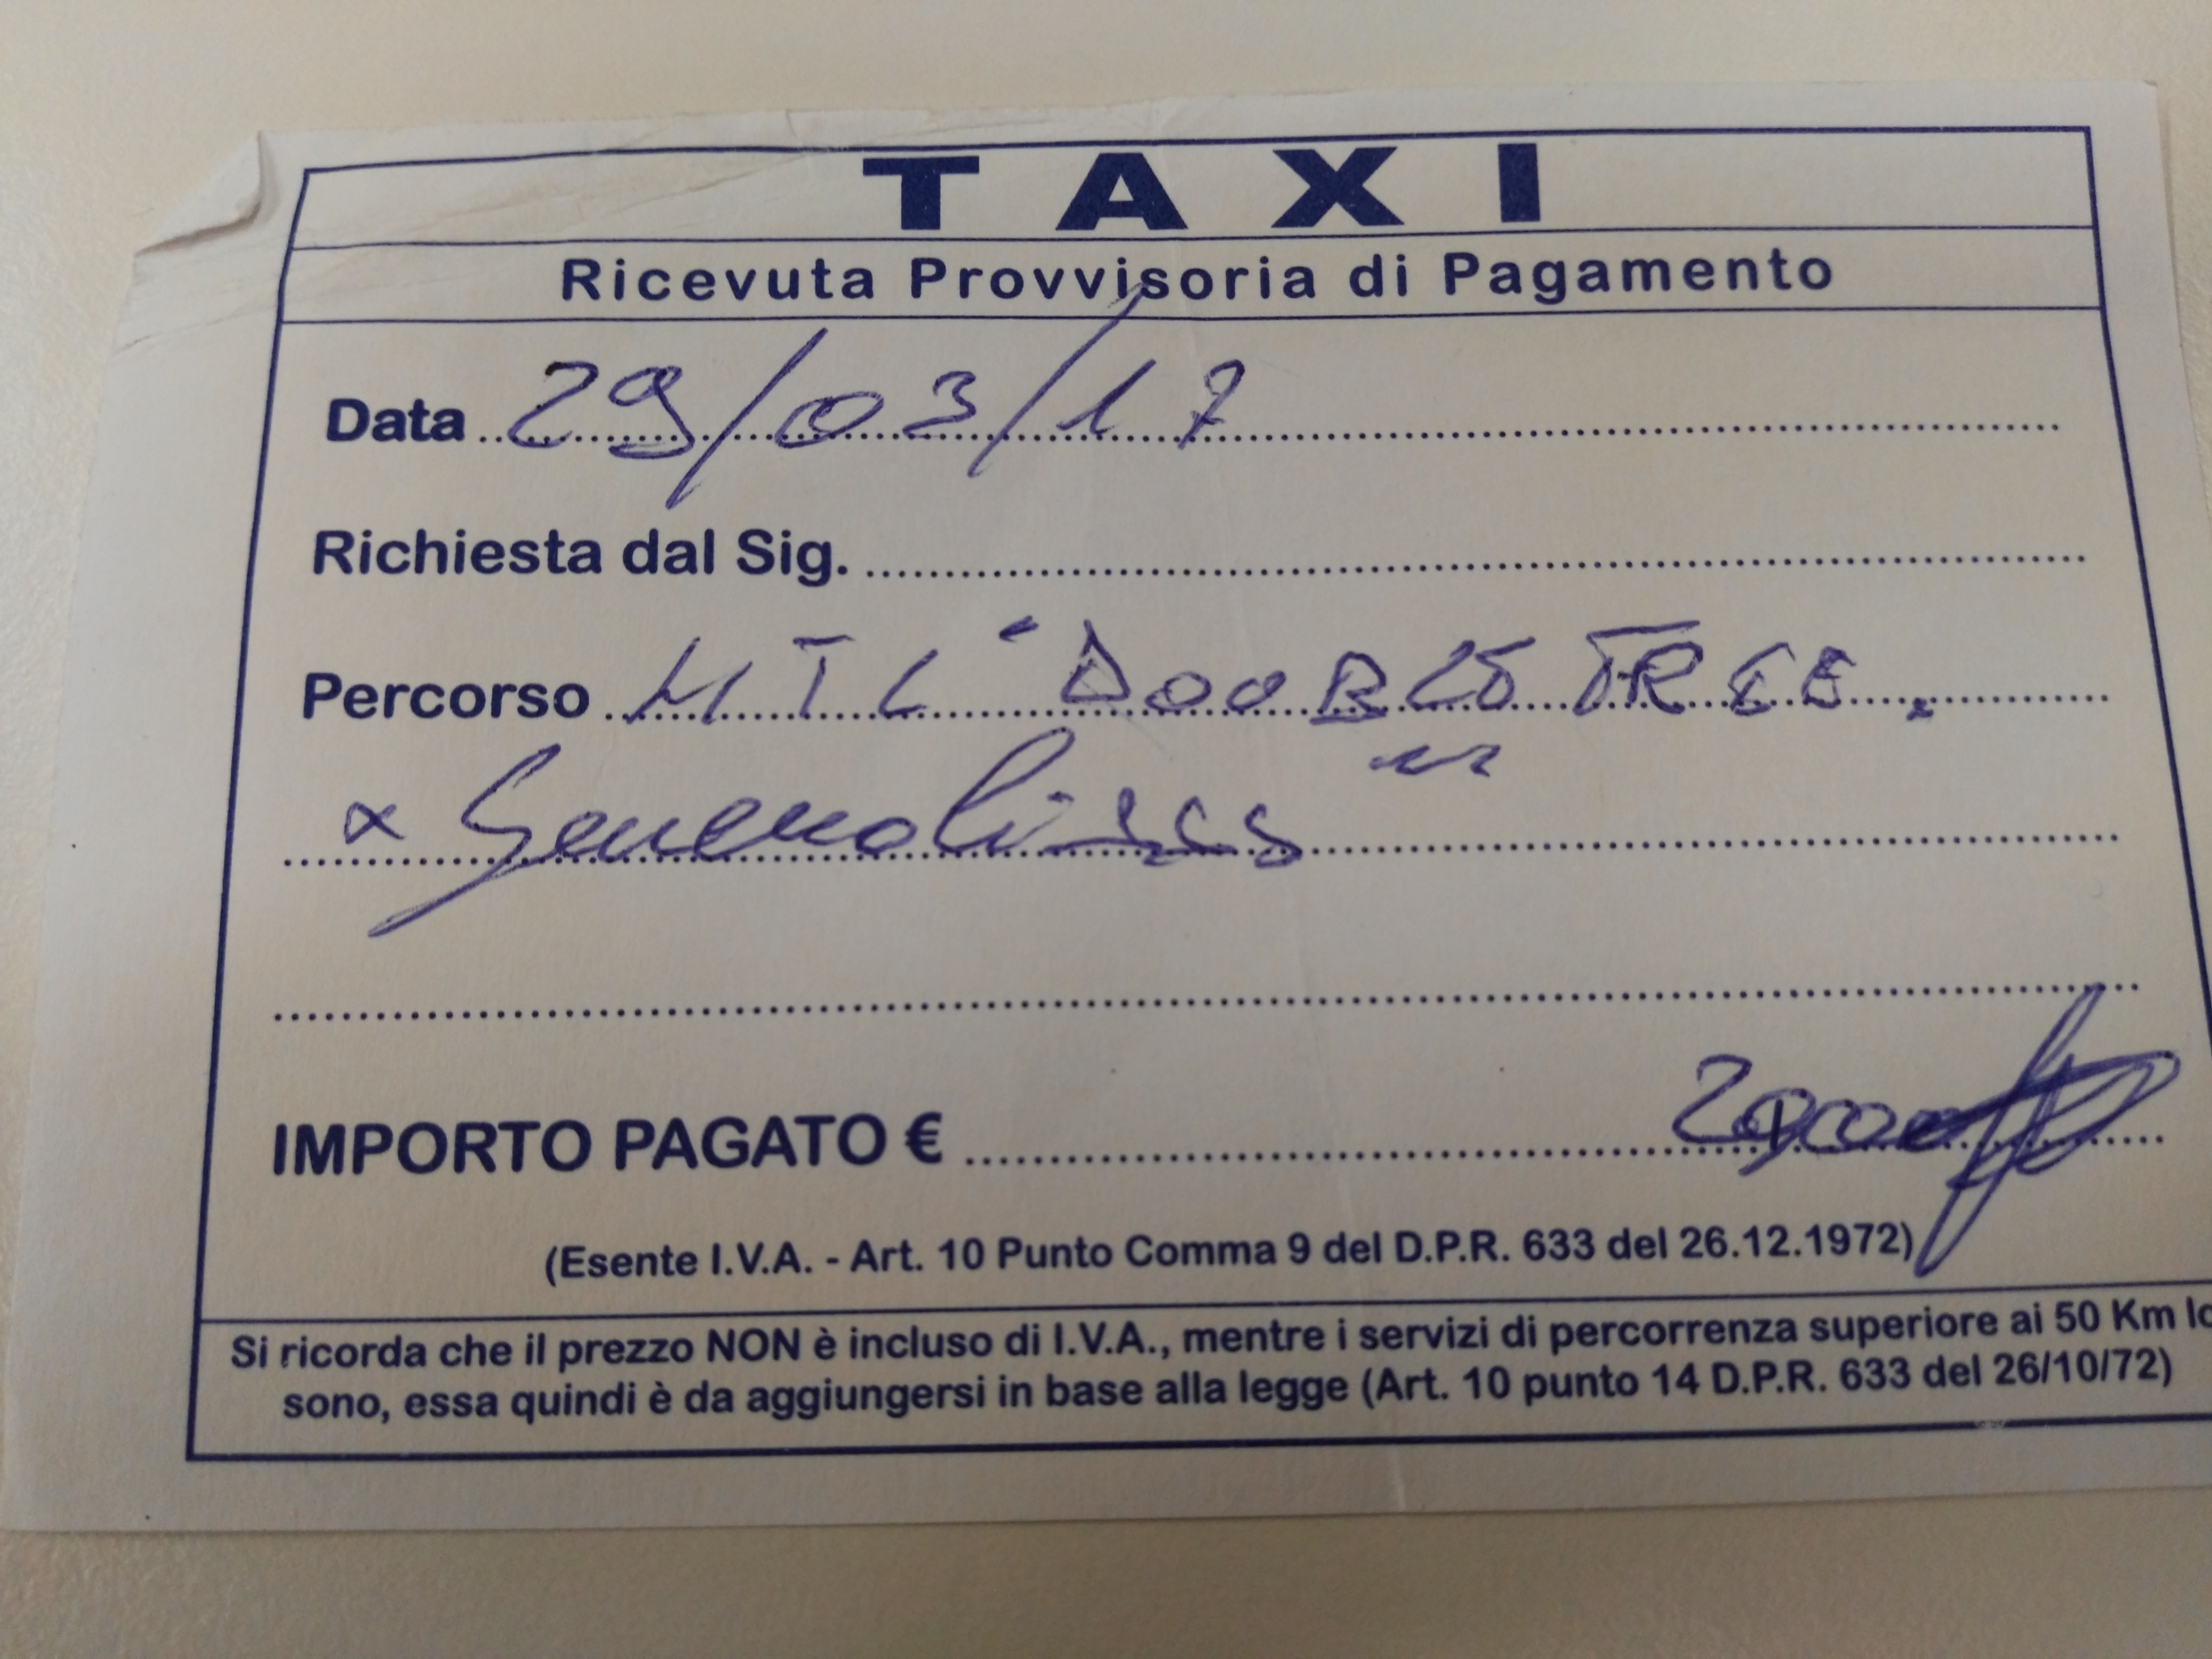 TAXI
Ricevuta Provvisoria di Pagamento
Data 29/03/17
Richiesta dal Sig.
Percorso HTL "DOUBLETREE
x
IMPORTO PAGATO €
(Esente I.V.A. - Art. 10 Punto Comma 9 del D.P.R. 633 del 26.12.1972)
Si ricorda che il prezzo NON è incluso di I.V.A., mentre i servizi di percorrenza superiore ai 50 Km lo
sono, essa quindi è da aggiungersi in base alla legge (Art. 10 punto 14 D.P.R. 633 del 26/10/72)